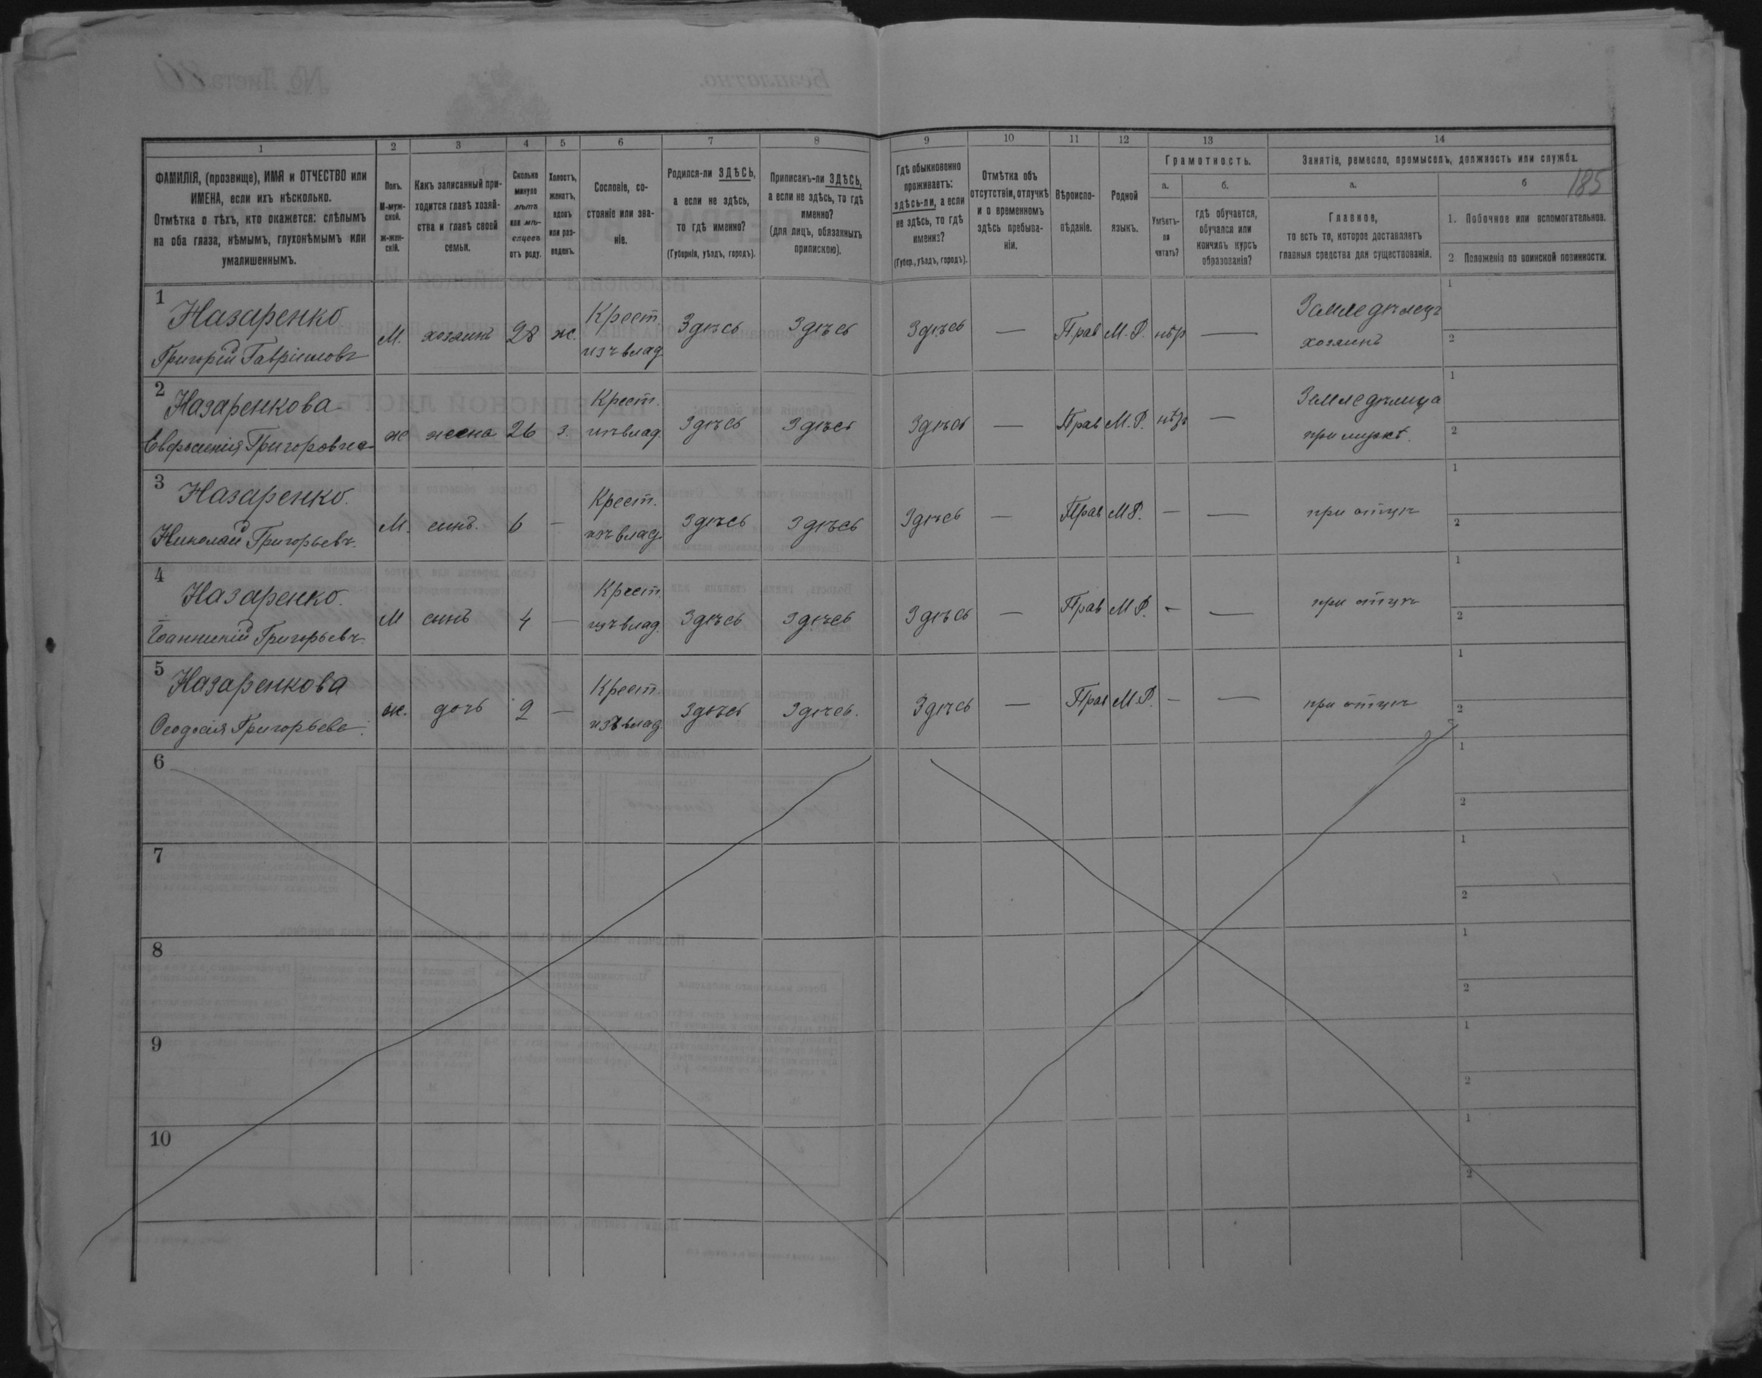 1 2 3 4 5 6 7 8 9 10 11 12 13 14
ФАМИЛІЯ, (прозвище), ИМЯ и ОТЧЕСТВО или ИМЕНА, если ихъ нѣсколько.
Отмѣтка о тѣхъ, кто окажется: слѣпымъ на оба глаза, нѣмымъ, глухонѣмымъ или умалишеннымъ.
Полъ.
М-муж-
ской.
ж-жен-
скій.
Какъ записанный при-
ходится главѣ хозяй-
ства и главѣ своей
семьи.
Сколько
минуло
лѣтъ
или мѣ-
сяцевъ
отъ роду.
Холостъ,
женатъ,
вдовъ
или раз-
веденъ.
Сословіе, со-
стояніе или зва-
ніе.
Родился-ли ЗДѢСЬ,
а если не здѣсь,
то гдѣ именно?
(Губернія, уѣздъ, городъ).
Приписанъ-ли ЗДѢСЬ,
а если не здѣсь, то гдѣ
именно?
(для лицъ, обязанныхъ
припискою).
Гдѣ обыкновенно
проживаетъ:
здѣсь-ли, а если
не здѣсь, то гдѣ
именно?
(Губер., уѣздъ, городъ).
Отмѣтка объ
отсутствіи, отлучкѣ
и о временномъ
здѣсь пребыва-
ніи.
Вѣроиспо-
вѣданіе.
Родной
языкъ.
Грамотность.
а.
Умѣетъ-
ли
читать?
б.
гдѣ обучается,
обучался или
кончилъ курсъ
образованія?
Занятіе, ремесло, промыселъ, должность или служба.
185
а.
Главное,
то есть то, которое доставляетъ
главныя средства для существованія.
б
1. Побочное или вспомогательное.
2 Положеніе по воинской повинности.
1 Назаренко
Григорій Гавріиловъ М. хозяинъ 28 ж. Крест. изъ влад. Здѣсь Здѣсь Здѣсь — Прав М.Р. — Земледѣлецъ хозяинъ 1 2
2 Назаренкова
Евфросинія Григоровна ж жена 26 з. Крест. изъ влад. Здѣсь Здѣсь Здѣсь — Прав М.Р. — Земледѣлица при мужѣ. 1 2
3 Назаренко
Николай Григорьевъ. М. сынъ. 6 — Крест. изъ влад. Здѣсь Здѣсь Здѣсь — Прав М.Р. — — при отцѣ 1 2
4 Назаренко.
Іоанникій Григорьевъ М сынъ 4 — Крест. изъ влад. Здѣсь Здѣсь Здѣсь — Прав М.Р. — — при отцѣ 1 2
5 Назаренкова
Феодосія Григорьева ж. дочь 2 — Крест. изъ влад. Здѣсь Здѣсь. Здѣсь — Прав М.Р. — — при отцѣ 1 2
6 1 2
7 1 2
8 1 2
9 1 2
10 1 2